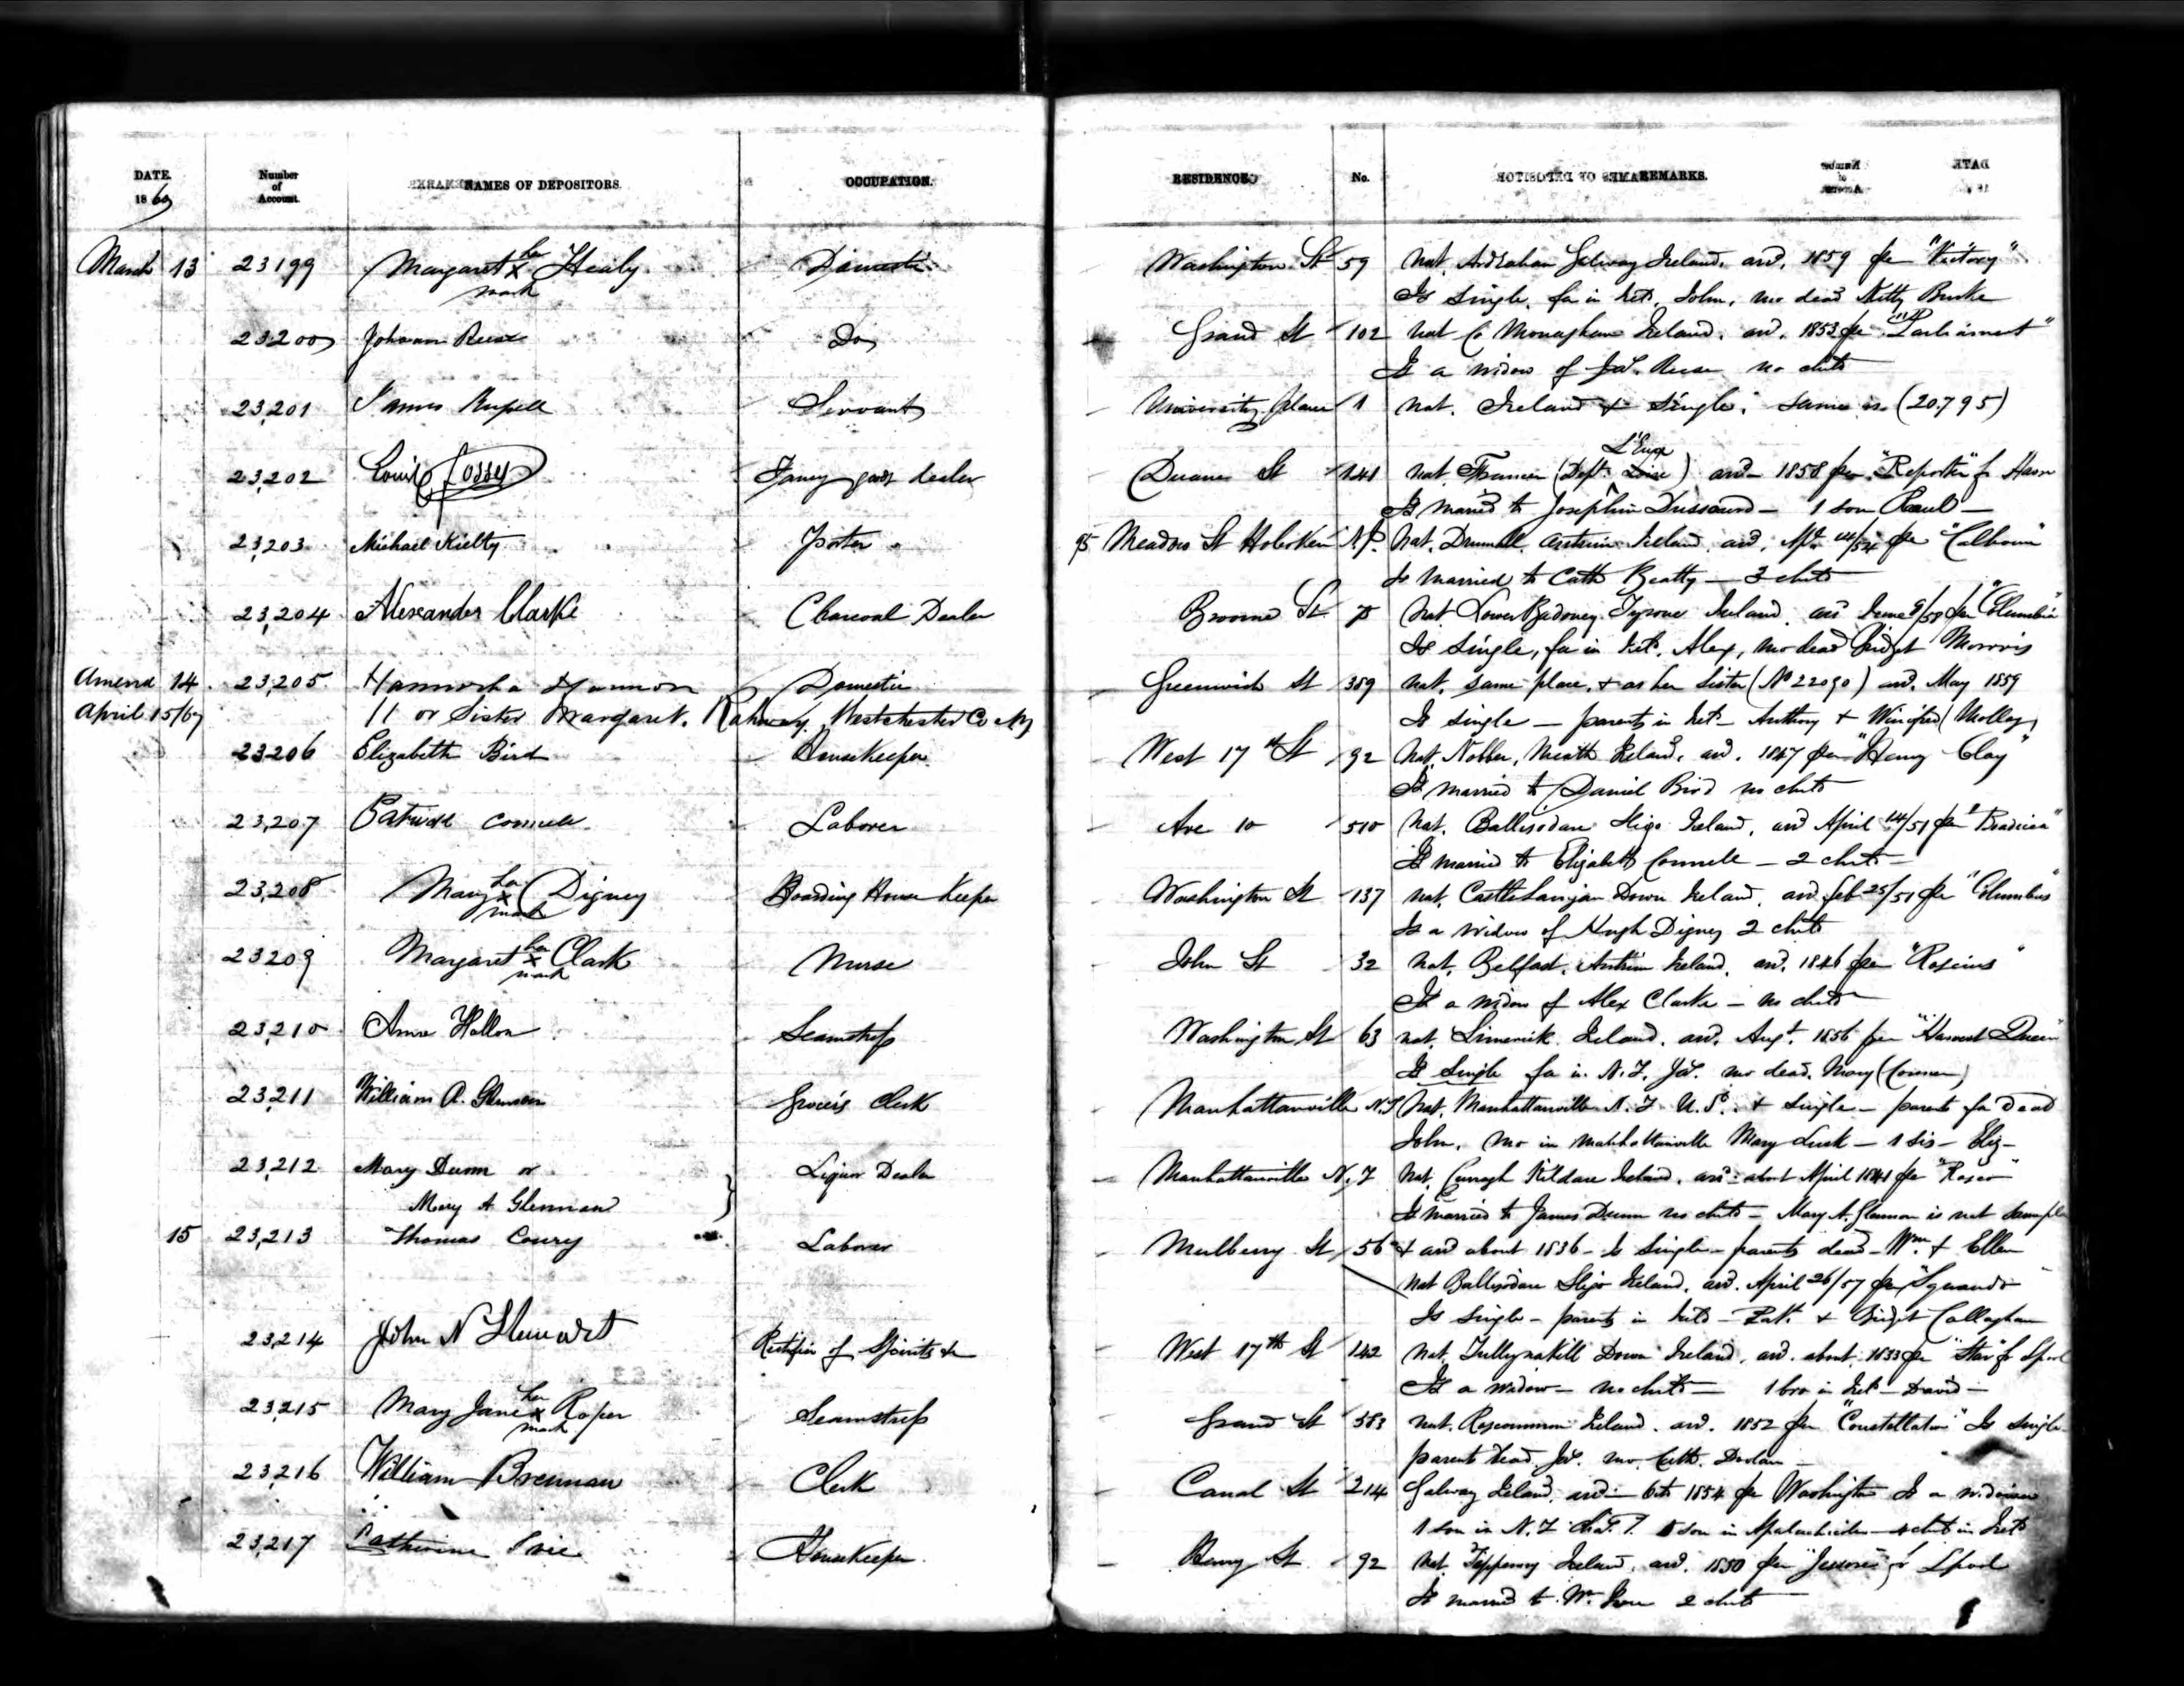 DATE. 1860 Number of Account. NAMES OF DEPOSITORS. OCCUPATION. RESIDENCE. No. REMARKS.
March 13 23199 Margaret her x mark Healy Domestic Washington St 59 nat. Ardrahan Galway Ireland. arr. 1859 per "Victory"
Is single. fa in Ireld, John, mo dead Kitty Burke
23200 Johanna Reese Do Grand St 102 nat Co Monaghan Ireland. arr. 1853 per "Parliament"
Is a widow of Reese no chds
23,201 James Russell Servant University place 1 nat. Ireland & single. same as (20.795)
23,202 Louis Fossey Fancy goods dealer Duane St 141 nat. France (Dept. L'Eure) arr 1858 per "Reporter" fr Havre
Is married to Josephine Dussaurd — 1 son Raul —
23,203 Michael Kielty Porter 95 Meadow St Hoboken N.J. Nat. Antrim Ireland. arr. 14/54 per "Calhoun"
Is married to Cath Beatty — 2 chds
23,204 Alexander Clarke Charcoal Dealer Broome St nat Lower Badoney Tyrone Ireland. arr June per "Columbia"
Is single, fa in Ireld. Alex, mo dead Bridget Morris
Amend 14 23,205 Hannorha Hannon Domestic Greenwich St 389 nat. same place. & as her sister (No 22090) arr. May 1859
April 15/67 or Sister Margaret. Westchester Co N.Y. Is single — parents in Ireld — Anthony & Winifred Molloy
23206 Elizabeth Bird Housekeeper West 17th St 92 Nat. Nobber, Meath Ireland, arr. 1847 per "Henry Clay"
Is married to Daniel Bird no chds
23,207 Patrick Connell Laborer Ave 10 510 Nat. Ballisodare Sligo Ireland, arr April 14/51 per
Is married to Elizabeth Connell — 2 chds —
23,208 Mary her x mark Digney Boarding House Keeper Washington St 137 nat. Down Ireland, arr Feb 25/51 per "Columbus"
Is a widow of Hugh Digney 2 chds
23209 Margaret her x mark Clark Nurse John St 32 nat. Belfast, Antrim Ireland, arr. 1846 per "Roscius"
Is a widow of Alex Clarke — no chds
23,210 Anne Hallon Seamstress Washington St 63 nat. Limerick Ireland. arr. Augt. 1856 per "Harvest Queen"
Is single fa in N.Y. mo dead. Mary
23,211 William A. Glennon Grocers Clerk Manhattanville N.Y. Nat. Manhattanville N.Y. U.S. & single — parents fa dead
John. mo in Manhattanville Mary Lusk — 1 sis — Eliz —
23,212 Mary Dunn or Liquor Dealer Manhattanville N.Y Nat. Curragh Kildare Ireland. arr about April 1841 per
Mary A Glennon Is married to James Dunn no chds — Mary A. Glennon is nat same place
15 23,213 Thomas Coury Laborer Mulberry St 56 & arr about 1836 — Is single — parents dead — Wm. & Ellen
nat Ballisodare Sligo Ireland. arr. April 26/57 per
Is single — parents in Ireld — Patk. & Bridget Callaghan
23,214 John N Stewart Rectifier of Spirits &c West 17th St 142 Nat. Tullynakill Down Ireland, arr. about 1833 per "Star" fr Lpool
Is a widow — no chds — 1 bro in Ireld — David —
23,215 Mary Jane her x mark Roper Seamstress Grand St 583 nat. Roscommon Ireland. arr. 1852 per "Constellation" Is single
parents dead. mo. Cath. Dolan —
23,216 William Brennan Clerk Canal St 214 Galway Ireland. arr 1854 per Washington Is a widower
1 son in N.Y. son in Apalachicola chds in Ireld
23,217 Catherine Housekeeper Henry St 92 Nat. Tipperary Ireland. arr. 1850 per fr Lpool
Is married to Wm. 2 chds